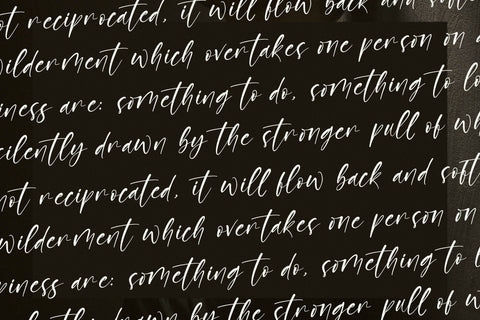 not reciprocated, it will flow back and
wilderment which overtakes one person on
piness are: something to do, something to lo
silently drawn by the stronger pull of wh
not reciprocated, it will flow back and soft
wilderment which overtakes one person on
piness are: something to do, something to l
by the stronger pull of w